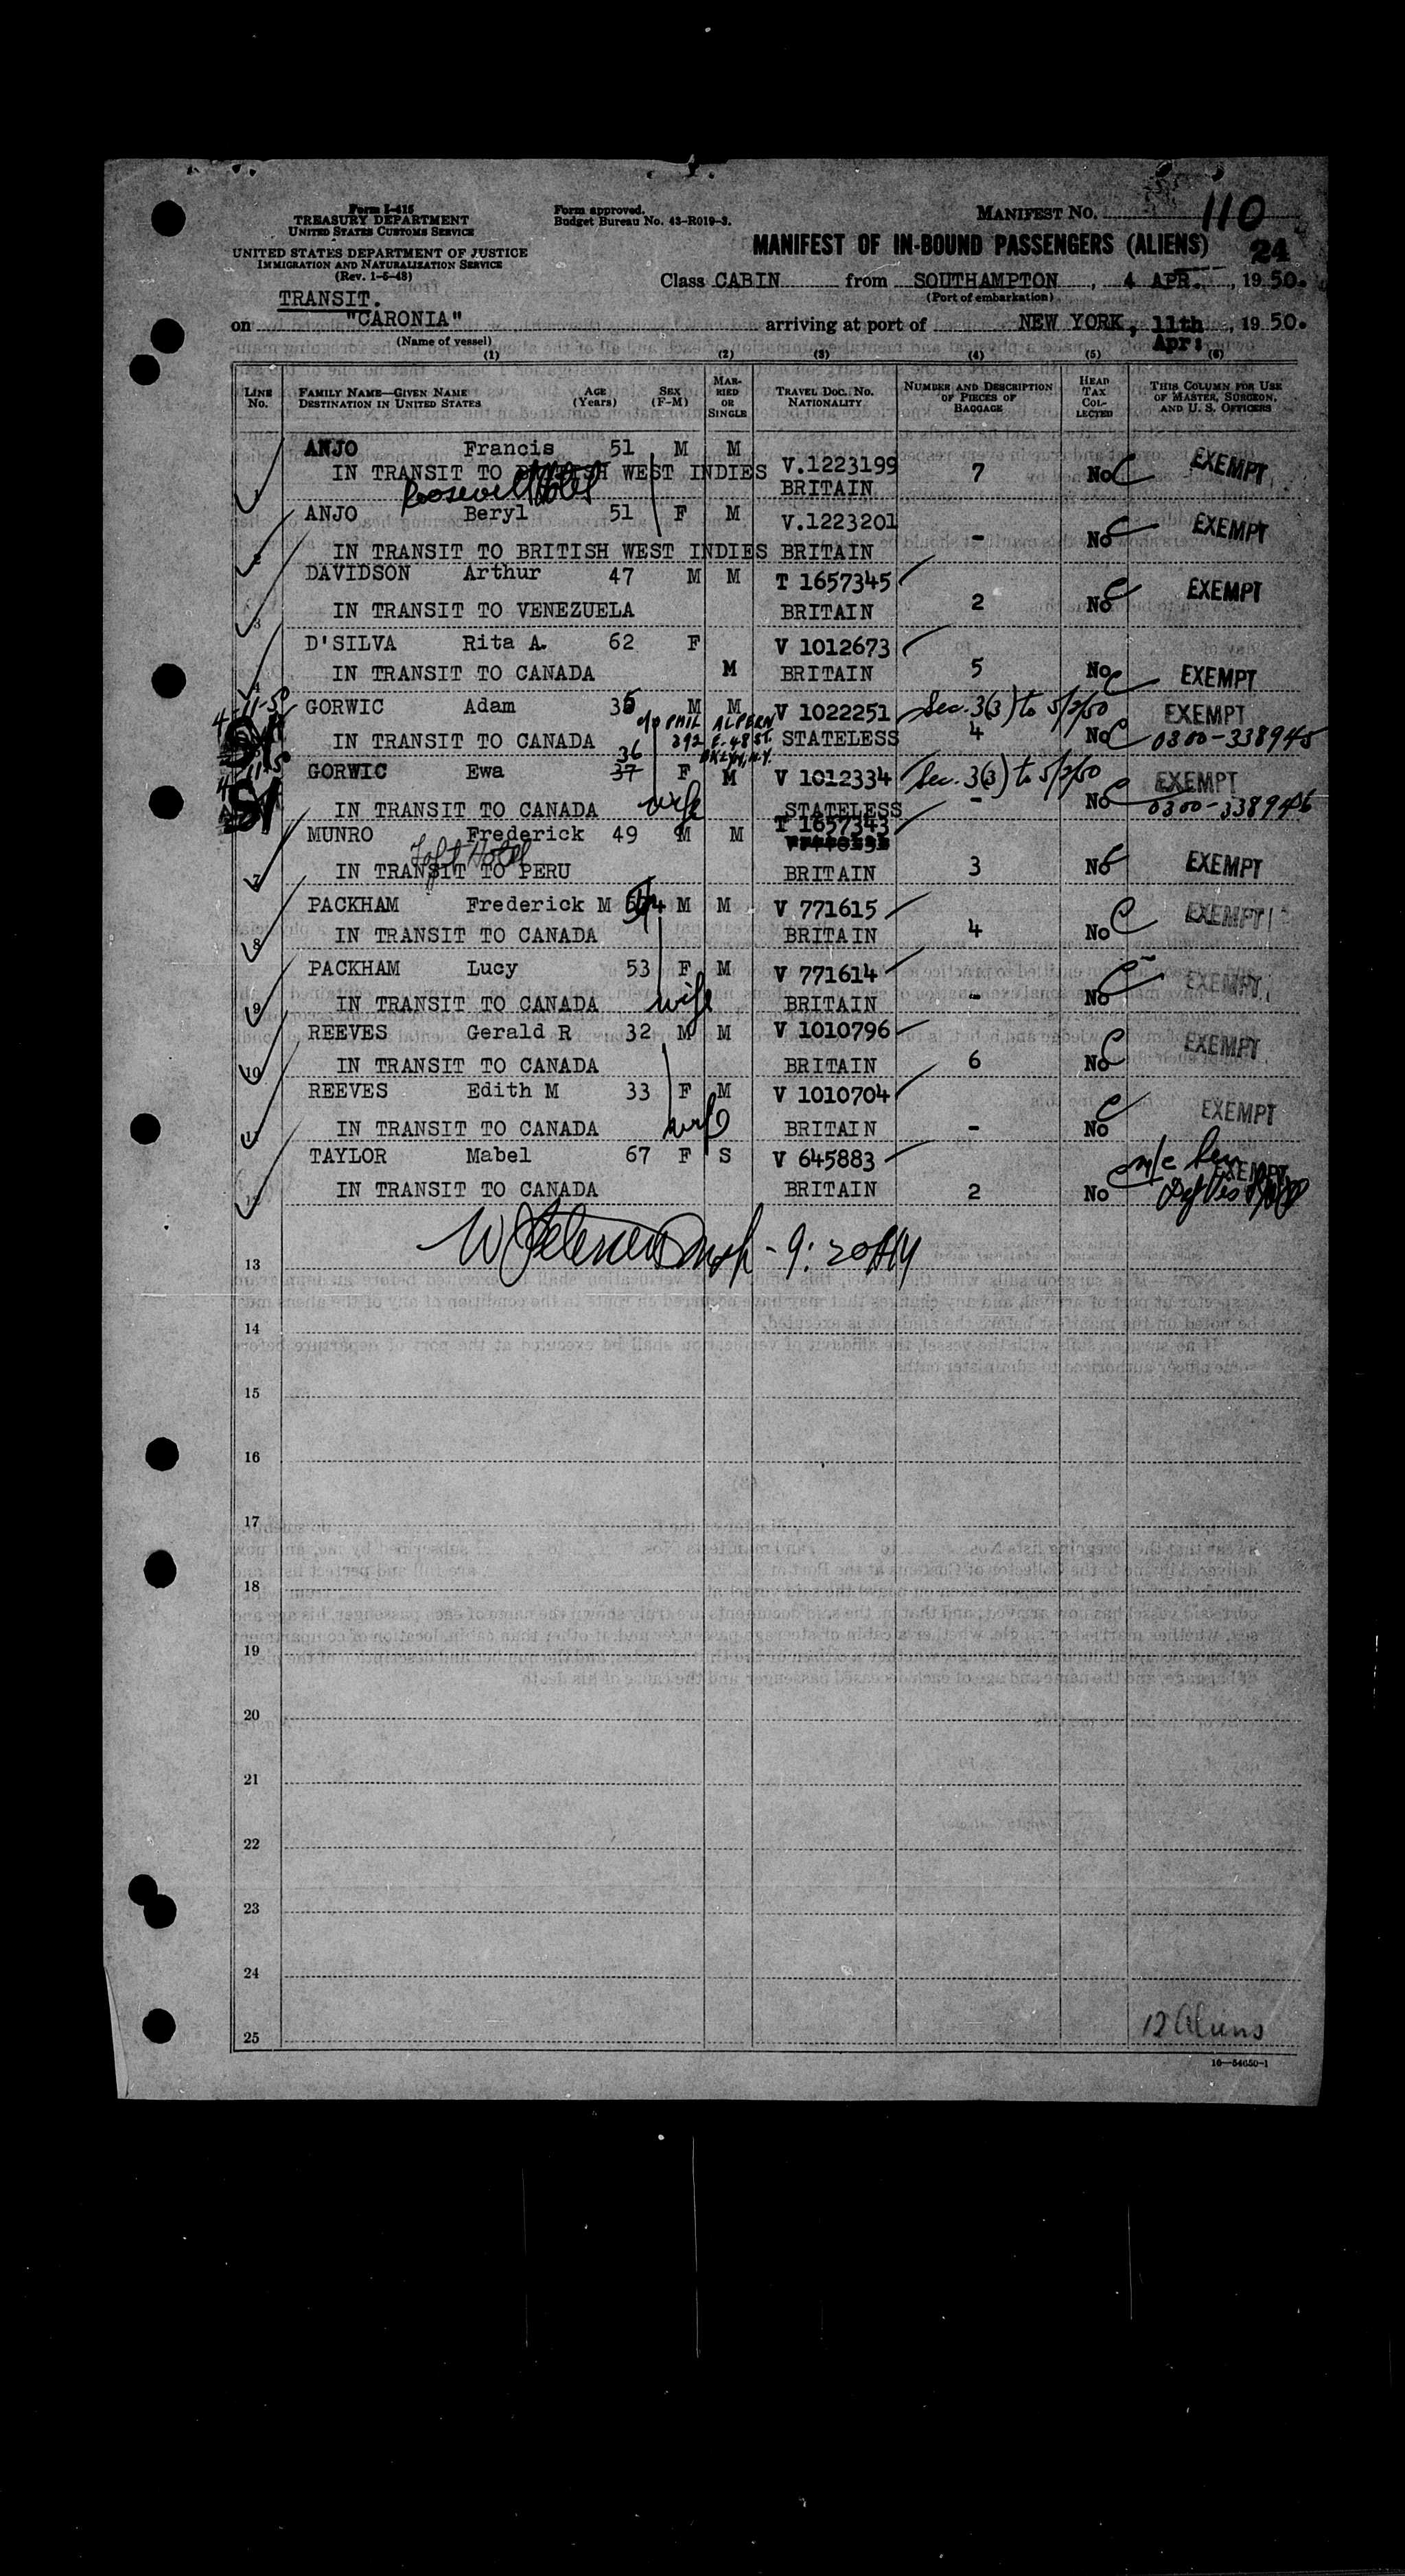 Form I-415
TREASURY DEPARTMENT
UNITED STATES CUSTOMS SERVICE
UNITED STATES DEPARTMENT OF JUSTICE
IMMIGRATION AND NATURALIZATION SERVICE
(Rev. 1-5-48)
Form approved.
Budget Bureau No. 43-R019-3.
MANIFEST NO. 110
MANIFEST OF IN-BOUND PASSENGERS (ALIENS) 24
Class CABIN from SOUTHAMPTON, 4 APR., 1950.
(Port of embarkation)
TRANSIT.
on "CARONIA" arriving at port of NEW YORK, 11th Apr: , 1950.
(Name of vessel)
(1) (2) (3) (4) (5) (6)
LINE No. FAMILY NAME—GIVEN NAME DESTINATION IN UNITED STATES AGE (Years) SEX (F-M) MARRIED OR SINGLE TRAVEL DOC. NO. NATIONALITY NUMBER AND DESCRIPTION OF PIECES OF BAGGAGE HEAD TAX COLLECTED THIS COLUMN FOR USE OF MASTER, SURGEON, AND U. S. OFFICERS
1 ANJO Francis 51 M M V.1223199 7 No EXEMPT
IN TRANSIT TO BRITISH WEST INDIES BRITAIN
Roosevelt Hotel
2 ANJO Beryl 51 F M V.1223201 - No EXEMPT
IN TRANSIT TO BRITISH WEST INDIES BRITAIN
3 DAVIDSON Arthur 47 M M T 1657345 2 No EXEMPT
IN TRANSIT TO VENEZUELA BRITAIN
4 D'SILVA Rita A. 62 F V 1012673
IN TRANSIT TO CANADA M BRITAIN 5 No EXEMPT
4-11-50 GORWIC Adam M M V 1022251 Sec. 3(3) to EXEMPT
c/o PHIL ALPERN
IN TRANSIT TO CANADA 292 E. 48 ST. STATELESS 4 No 0300-338945
BKLYN, N.Y.
SI GORWIC Ewa 37 36 F M V 1012334 Sec. 3(3) to EXEMPT
IN TRANSIT TO CANADA wife STATELESS - No 0300-338946
7 MUNRO Frederick 49 M M T 1657343
Taft Hotel
IN TRANSIT TO PERU BRITAIN 3 No EXEMPT
8 PACKHAM Frederick M M M V 771615 EXEMPT
IN TRANSIT TO CANADA BRITAIN 4 No
9 PACKHAM Lucy 53 F M V 771614 EXEMPT
IN TRANSIT TO CANADA wife BRITAIN - No
10 REEVES Gerald R 32 M M V 1010796 EXEMPT
IN TRANSIT TO CANADA BRITAIN 6 No
11 REEVES Edith M 33 F M V 1010704 EXEMPT
IN TRANSIT TO CANADA wife BRITAIN - No
TAYLOR Mabel 67 F S V 645883 EXEMPT
IN TRANSIT TO CANADA BRITAIN 2 No
13
14
15
16
17
18
19
20
21
22
23
24
25
12 Aliens
16—54650-1